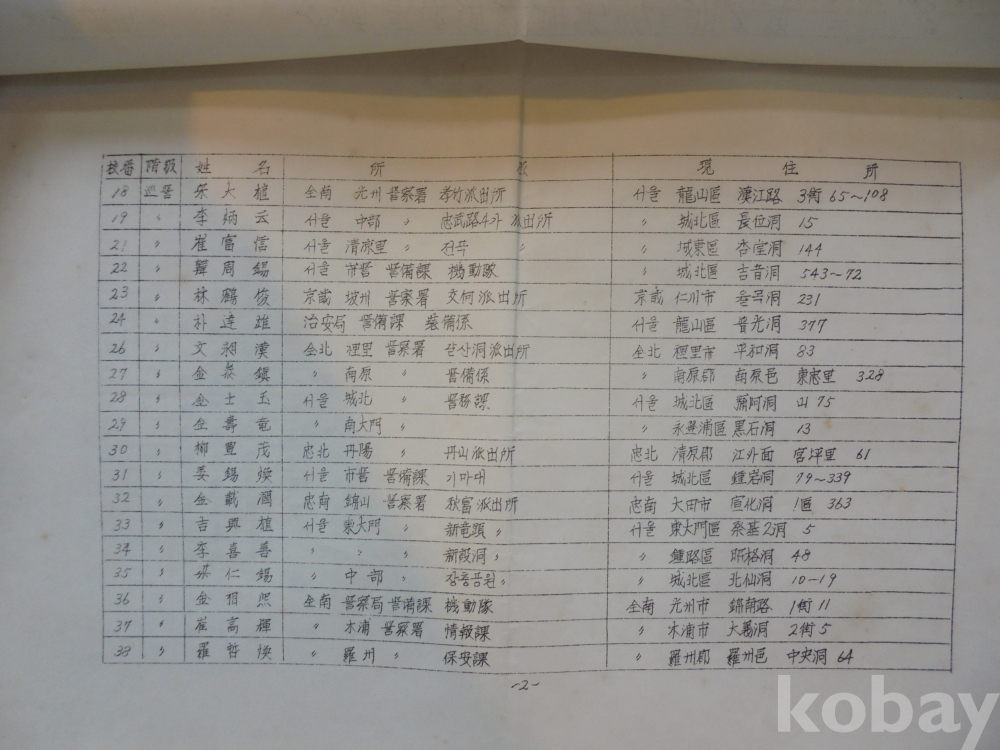 校番 階級 姓 名 所 現 住 所
18 巡警 朱大植 全南 光州 警察署 孝竹派出所 서울 龍山區 漢江路 3街 65~108
19 〃 李炳云 서울 中部 〃 忠武路4가 派出所 〃 城北區 長位洞 15
21 〃 崔富信 서울 清凉里 〃 전곡 〃 〃 城東區 杏堂洞 144
22 〃 韓周錫 서울 市警 警備課 機動隊 〃 城北區 吉音洞 543~72
23 〃 林鶴俊 京畿 坡州 警察署 交河派出所 京畿 仁川市 栗곡洞 231
24 〃 朴達雄 治安局 警備課 裝備係 서울 龍山區 普光洞 377
26 〃 文昶漢 全北 裡里 警察署 派出所 全北 裡里市 平和洞 83
27 〃 金炭鎭 〃 南原 〃 警備係 〃 南原郡 南原邑 里 328
28 〃 金士玉 서울 城北 〃 警務課 서울 城北區 彌阿洞 山 75
29 〃 金壽竜 〃 南大門 〃 〃 永登浦區 黑石洞 13
30 〃 柳豊茂 忠北 丹陽 〃 丹山派出所 忠北 清原郡 江外面 宮坪里 61
31 〃 姜錫煥 서울 市警 警備課 기마대 서울 城北區 鍾岩洞 79~339
32 〃 金載潤 忠南 錦山 警察署 秋富派出所 忠南 大田市 宣化洞 1區 363
33 〃 吉興植 서울 東大門 〃 新竜頭 〃 서울 東大門區 祭基2洞 5
34 〃 李喜善 〃 〃 〃 新設洞 〃 〃 鍾路區 昭格洞 48
35 〃 梁仁錫 〃 中部 〃 장충공원 〃 〃 城北區 北仙洞 10~19
36 〃 金相熙 全南 警察局 警備課 機動隊 全南 光州市 錦南路 1街 11
37 〃 崔高輝 〃 木浦 警察署 情報課 〃 木浦市 大義洞 2街 5
38 〃 羅哲煥 〃 羅州 〃 保安課 〃 羅州郡 羅州邑 中央洞 64
-2-
kobay